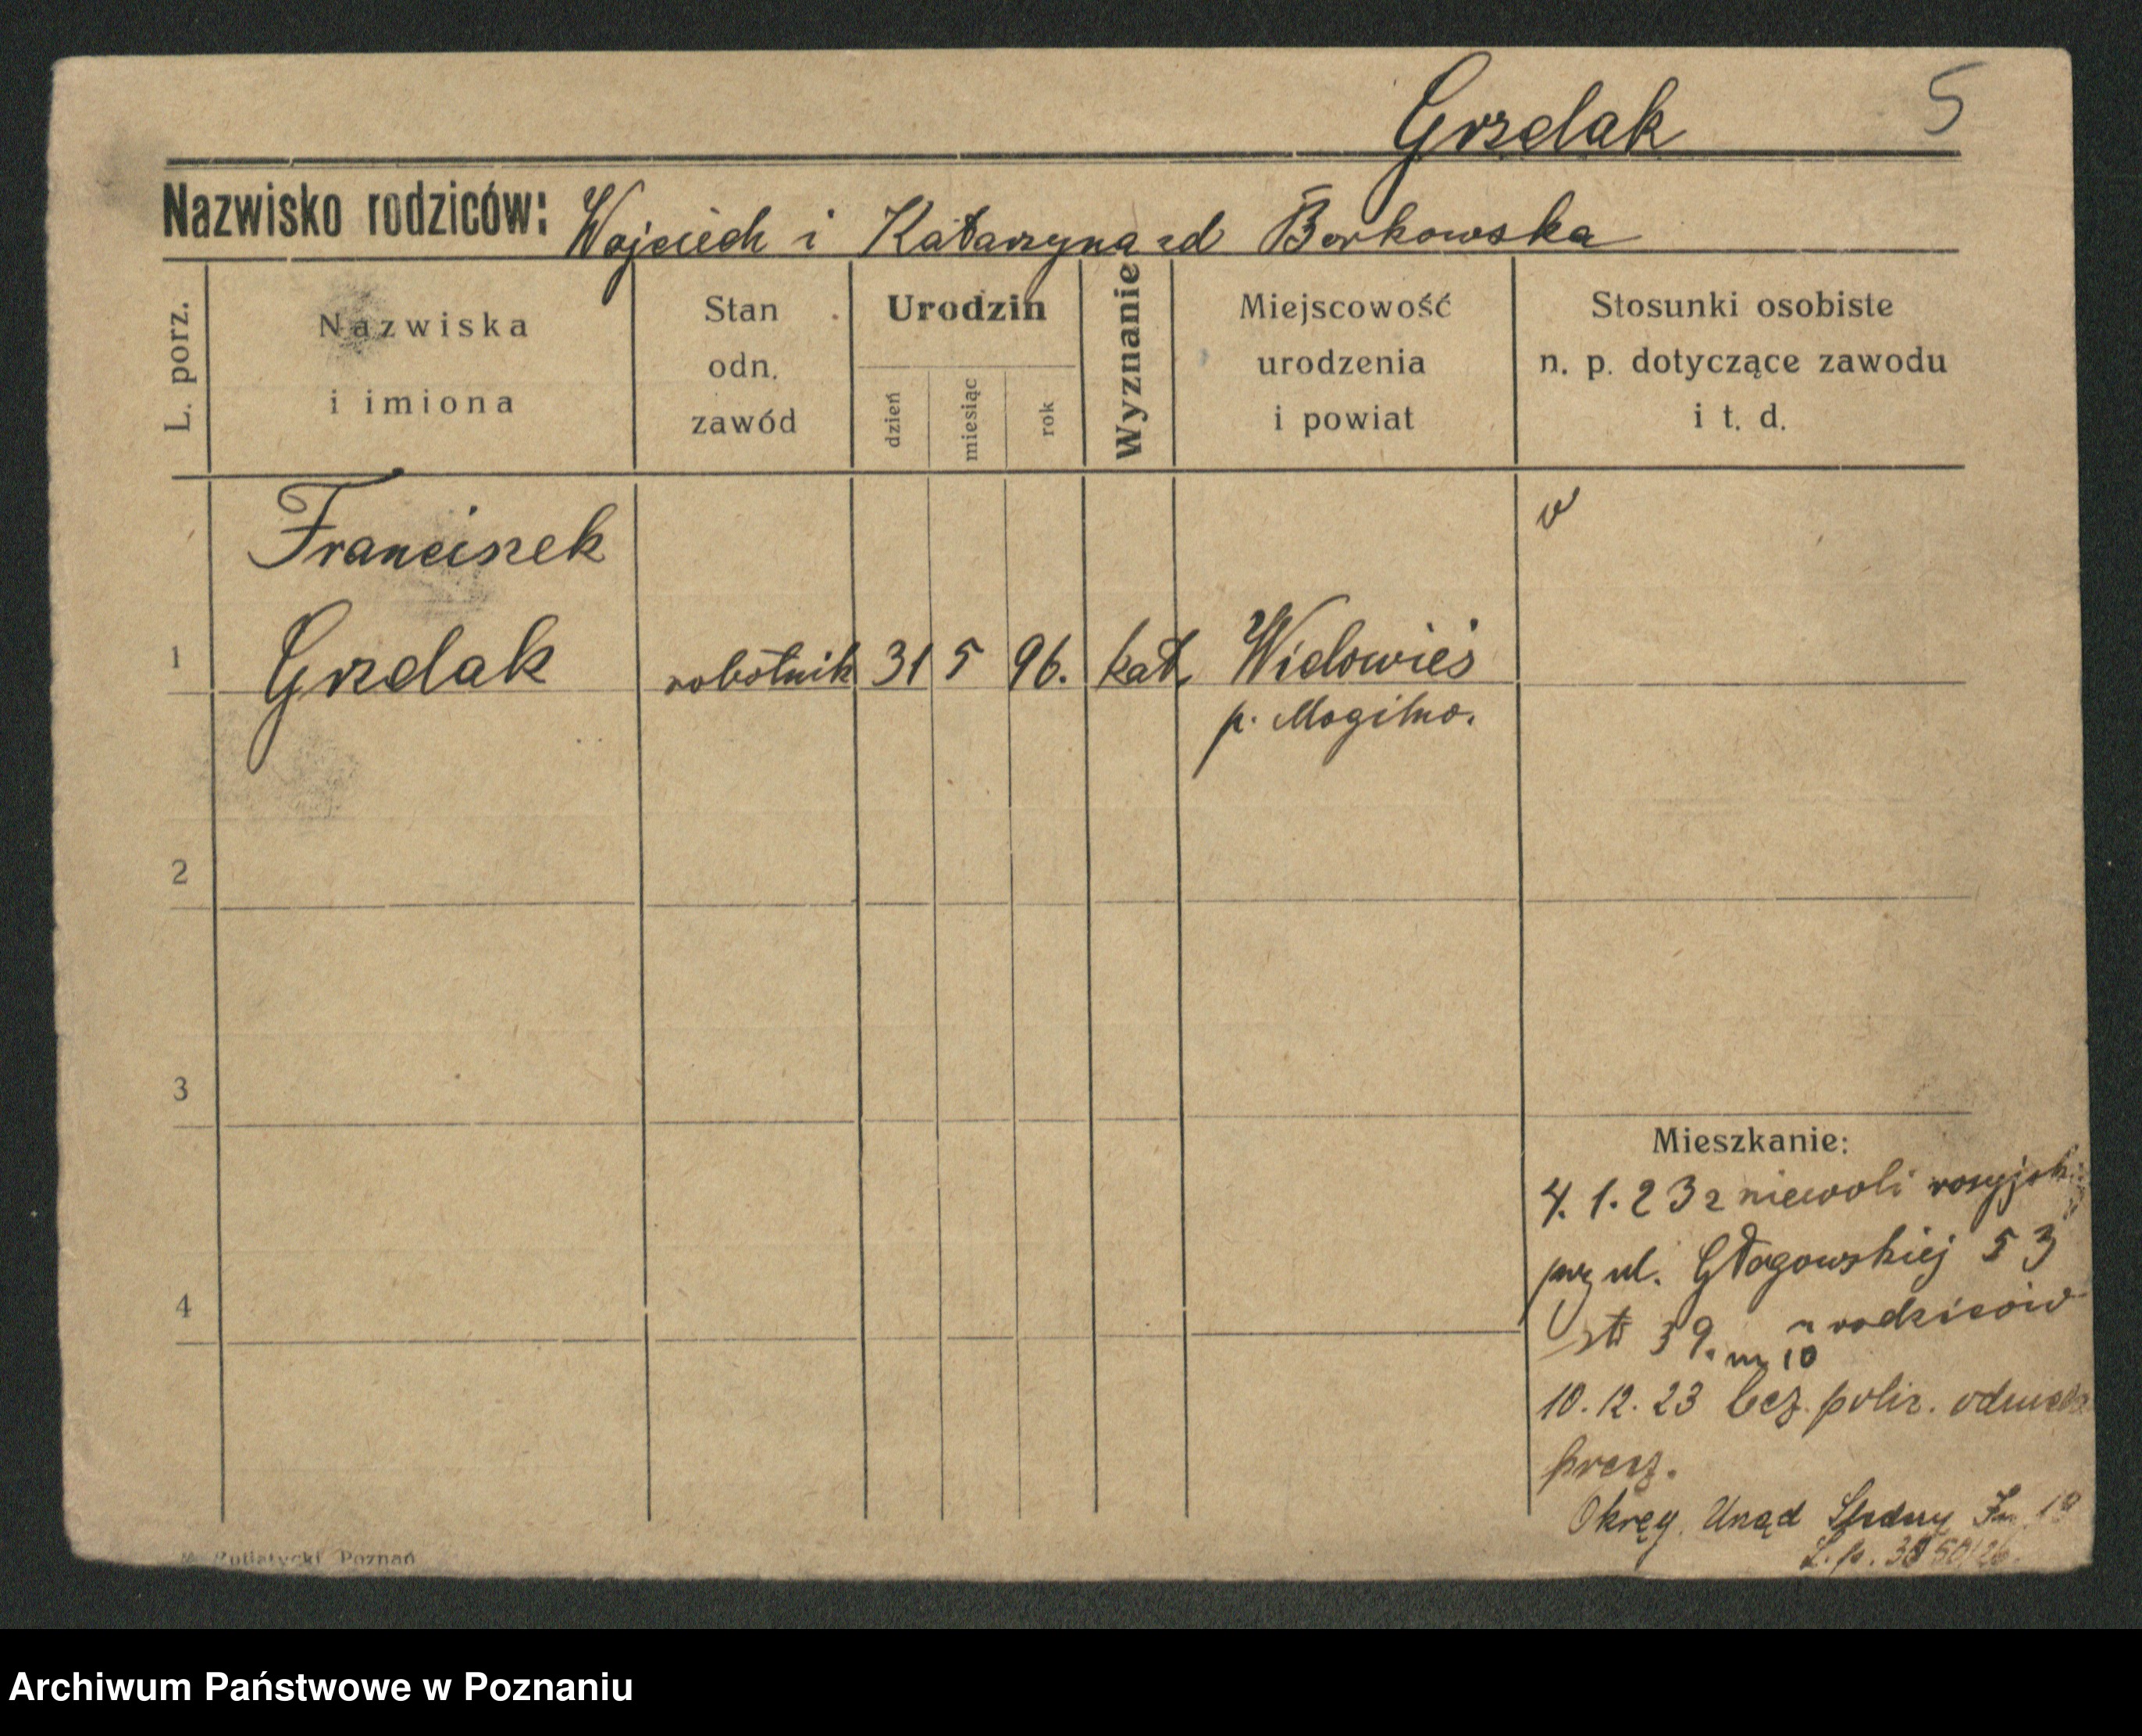 Grzelak 5
Nazwisko rodziców: Wojciech i Katarzyna zd Borkowska
L. porz.
Nazwiska
i imiona
Stan
odn.
zawód
Urodzin
dzień
miesiąc
rok
Wyznanie
Miejscowość
urodzenia
i powiat
Stosunki osobiste
n. p. dotyczące zawodu
i t. d.
v
Franciszek
1 Grzelak robotnik 31 5 96. kat. Widowieś
p. Mogilno.
2
3
4
Mieszkanie:
4. 1. 23 z niewoli rosyjsk.
przy ul. Głogowskiej 53
39. m 10 u rodziców
10. 12. 23 bez polic.
Okręg. Urząd
L. p. 50/26.
Poznań
Archiwum Państwowe w Poznaniu